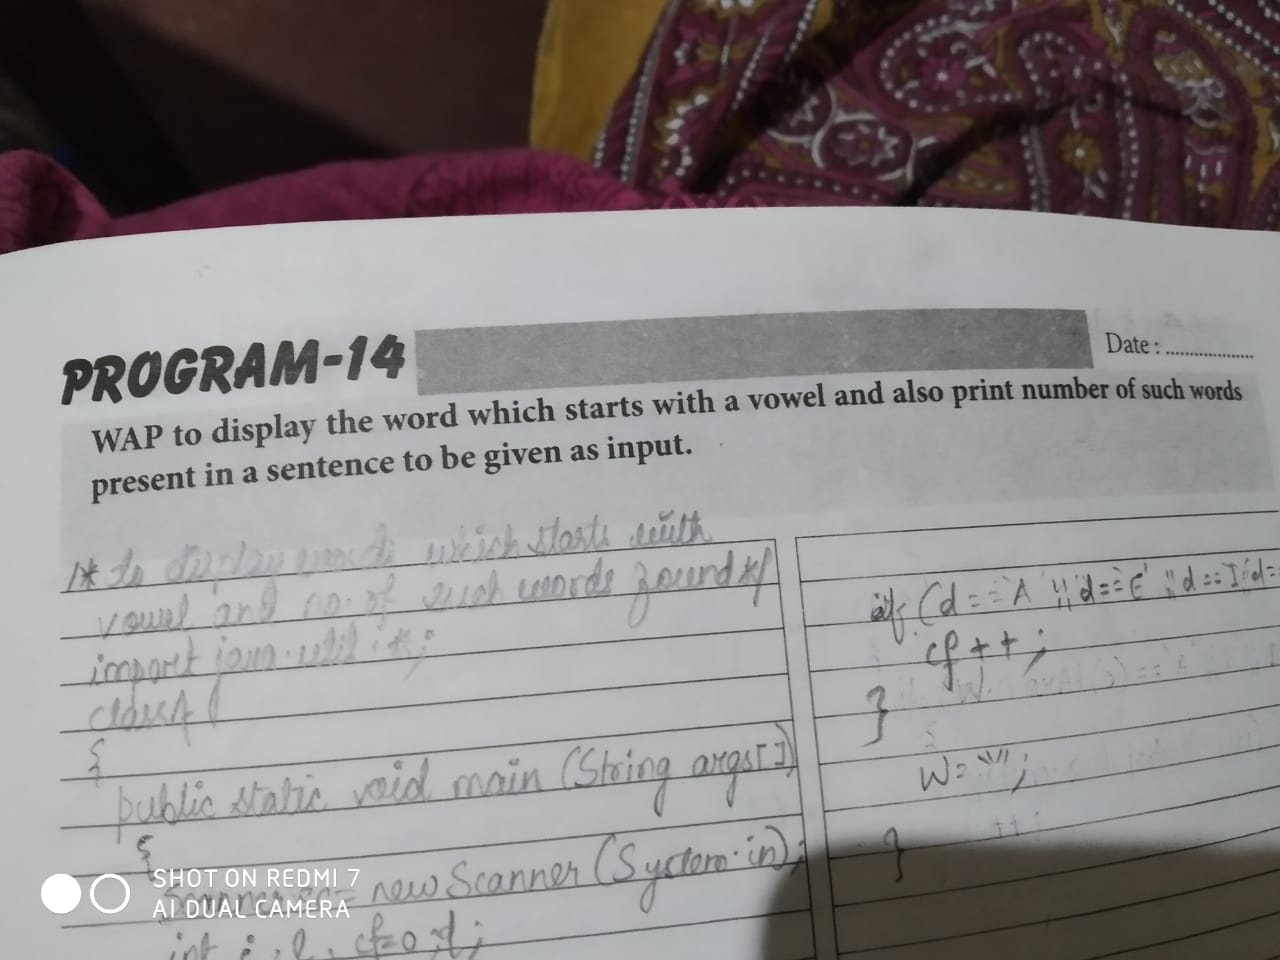 PROGRAM-14
Date : ...................
WAP to display the word which starts with a vowel and also print number of such words
present in a sentence to be given as input.
/* to display words which starts with
vowel and no. of such words found */
import java.util.*;
class A
{
public static void main (String args[])
{
Scanner = new Scanner (System.in);
int i, l, cf=0, d;
if (d=='A' || d=='E' || d=='I' d=
cf++;
}
W="";
}
SHOT ON REDMI 7
AI DUAL CAMERA